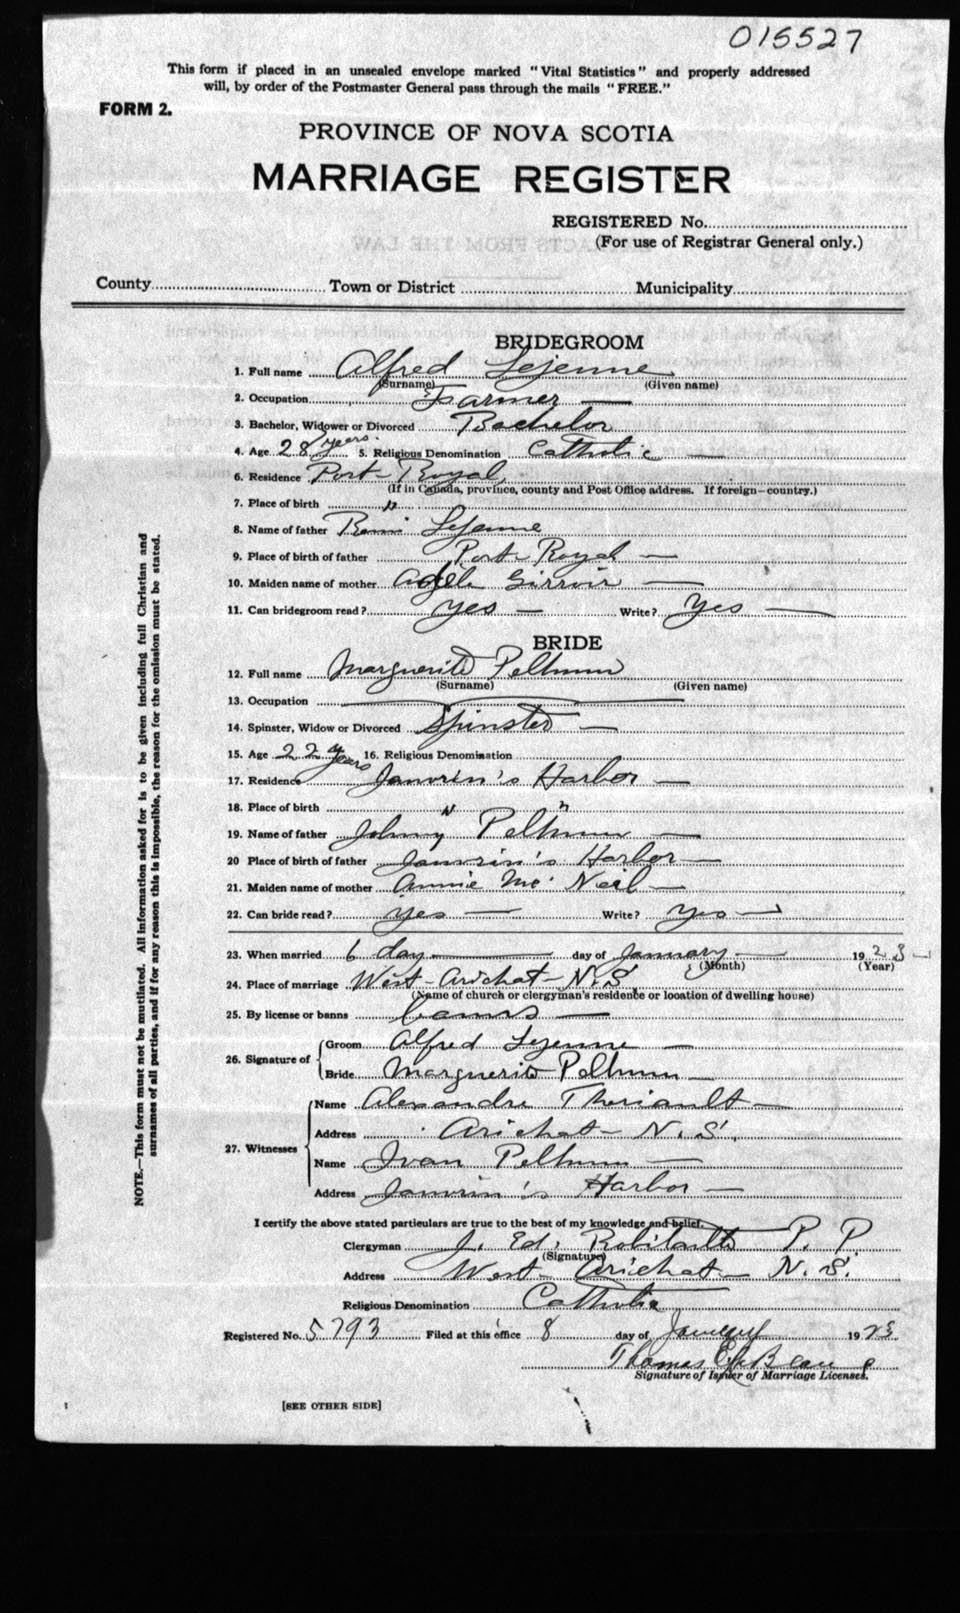 015527
This form if placed in an unsealed envelope marked "Vital Statistics" and properly addressed
will, by order of the Postmaster General pass through the mails "FREE."
FORM 2.
PROVINCE OF NOVA SCOTIA
MARRIAGE REGISTER
REGISTERED No.
(For use of Registrar General only.)
County Town or District Municipality
BRIDEGROOM
1. Full name Alfred Lejeune
(Surname) (Given name)
2. Occupation Farmer
3. Bachelor, Widower or Divorced Bachelor
4. Age 28 years. 5. Religious Denomination Catholic
6. Residence Port-Royal,
(If in Canada, province, county and Post Office address. If foreign—country.)
7. Place of birth "
8. Name of father Remi Lejeune
9. Place of birth of father Port-Royal
10. Maiden name of mother Adèle Girroir
11. Can bridegroom read? Yes Write? Yes
BRIDE
12. Full name Marguerite Pelham
(Surname) (Given name)
13. Occupation
14. Spinster, Widow or Divorced Spinster
15. Age 22 years 16. Religious Denomination
17. Residence Janvrin's Harbor
18. Place of birth " "
19. Name of father Johny Pelham
20 Place of birth of father Janvrin's Harbor
21. Maiden name of mother Annie Mc Neil
22. Can bride read? yes Write? yes
23. When married 6 day day of January 1923
(Month) (Year)
24. Place of marriage West-Arichat-N.S.
(Name of church or clergyman's residence or location of dwelling house)
25. By license or banns banns
26. Signature of Groom Alfred Lejeune
Bride Marguerite Pelham
27. Witnesses Name Alexandre Theriault
Address Arichat-N.S.
Name Ivan Pelham
Address Janvrin's Harbor
I certify the above stated particulars are true to the best of my knowledge and belief.
Clergyman J. Ed. Robitaille P. P.
(Signature)
Address West-Arichat-N.S.
Religious Denomination Catholic
Registered No. 5793 Filed at this office 8 day of January 1923
Thomas LeBlanc
Signature of Issuer of Marriage Licenses.
[SEE OTHER SIDE]
NOTE.—This form must not be mutilated. All information asked for is to be given including full Christian and
surnames of all parties, and if for any reason this is impossible, the reason for the omission must be stated.